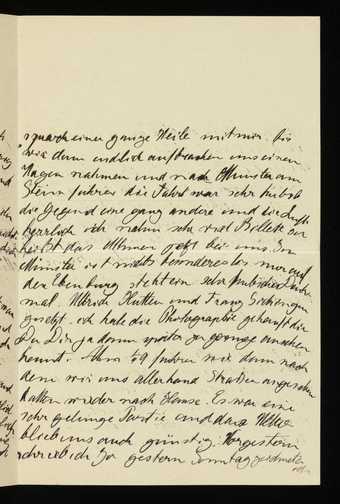 sprach einer ganze Weile mit mir. Bis
wir dann endlich aufbrachen uns einen
Wagen nahmen und nach Münster am
Stein fuhren die Fahrt war sehr hübsch
die Gegend eine ganz andere und die Luft
herrlich ich nahm sehr viel
heißt das Athmen jetzt bei uns. In
Münster ist nichts besonderes los nur auf
der Ebernburg steht ein sehr hübsches Denk-
mal. Ulrich Hutten und Franz Sickingen
gesetzt. ich habe die Photographie gekauft die
Du Dir ja dann später ja genau ansehen
kannst. Um fuhren wir dann nach
dem wir uns allerhand Straßen angesehen
hatten wieder nach Hause. Es war eine
sehr gelungene Partie und das Wetter
blieb uns auch günstig. Vorgestern
schrieb ich Dir gestern Sonntag